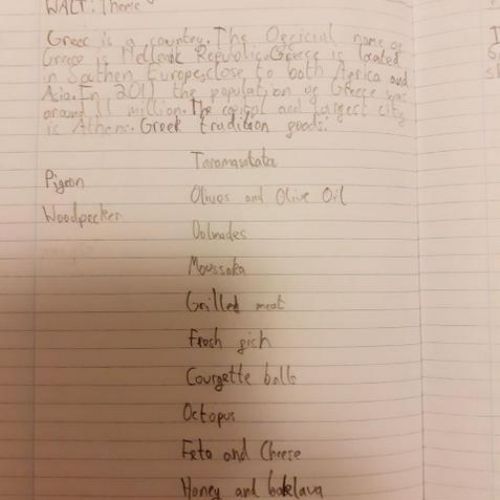 WALT: Theme
Greec is a country. The Official name of
Greece is Hellenic Republic. Greece is located
in Southen Europe, close to both Africa and
Asia. In 2011 the population of Greece was
around 11 million. The capital and largest city
is Athens. Greek tradition goods:
Taramasalata
Pigeon
Olives and Olive Oil
Woodpecker
Dolmades
Moussaka
Grilled meat
Fresh fish
Courgette balls
Octopus
Feta and Cheese
Honey and baklava